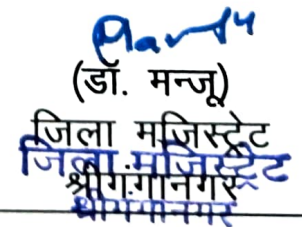 (डॉ. मन्जू)
जिला मजिस्ट्रेट
जिला मजिस्ट्रेट
श्रीगंगानगर
श्रीगंगानगर